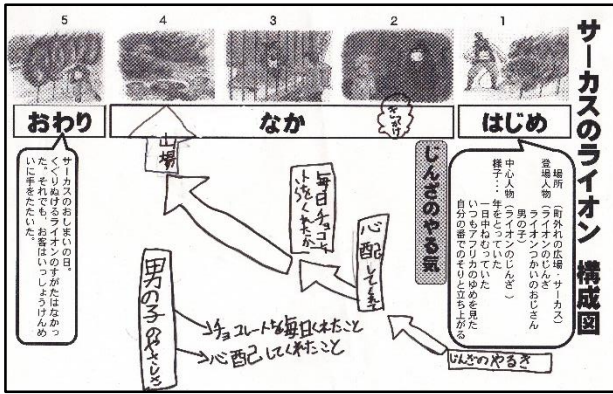 サーカスのライオン 構成図
1
2
3
4
5
はじめ
なか
おわり
場所 (町外れの広場・サーカス)
登場人物 (ライオンのじんざ
ライオンつかいのおじさん
男の子)
中心人物 (ライオンのじんざ)
様子・・・年をとっていた
一日中ねむっていた
いつもアフリカのゆめを見た
自分の番でのそりと立ち上がる
きっかけ
じんざのやる気
じんざのやるき
心配してくれて
毎日チョコレ
出場
男の子のやさしさ
→チョコレートを毎日くれたこと
→心配してくれたこと
サーカスのおしまいの日。
くぐりぬけるライオンのすがたはなかっ
た。それでも、お客はいっしょうけんめ
いに手をたたいた。